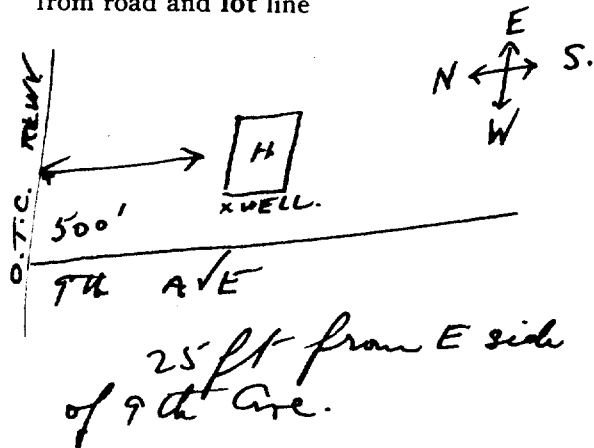 from road and lot line
E
N S.
W
O.T.C. RLWY
H
x WELL.
500'
9th AVE
25 ft from E side
of 9th Ave.